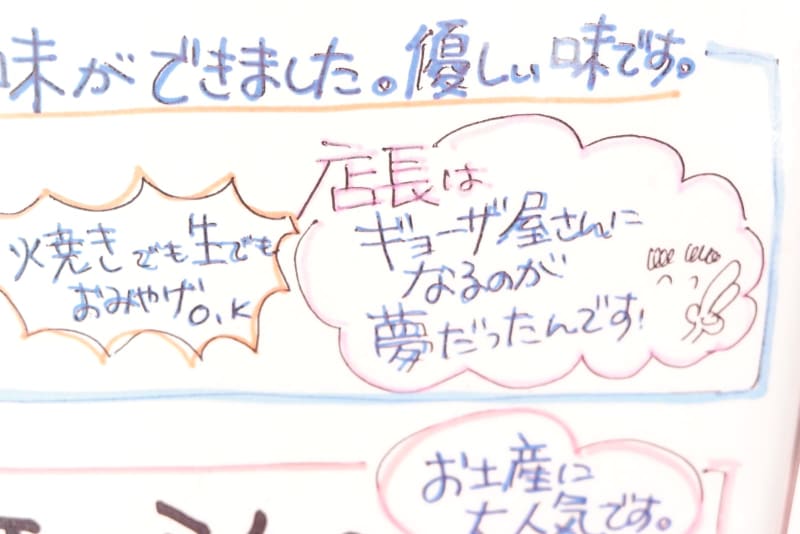 味ができました。優しい味です。
焼きでも生でも
おみやげO.K
店長は
ギョーザ屋さんに
なるのが
夢だったんです!
お土産に
大人気です。